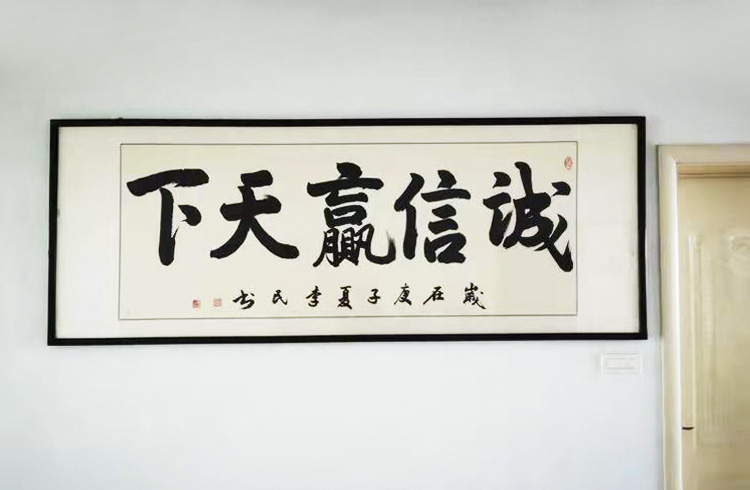 诚信赢天下
歲在庚子夏李民书